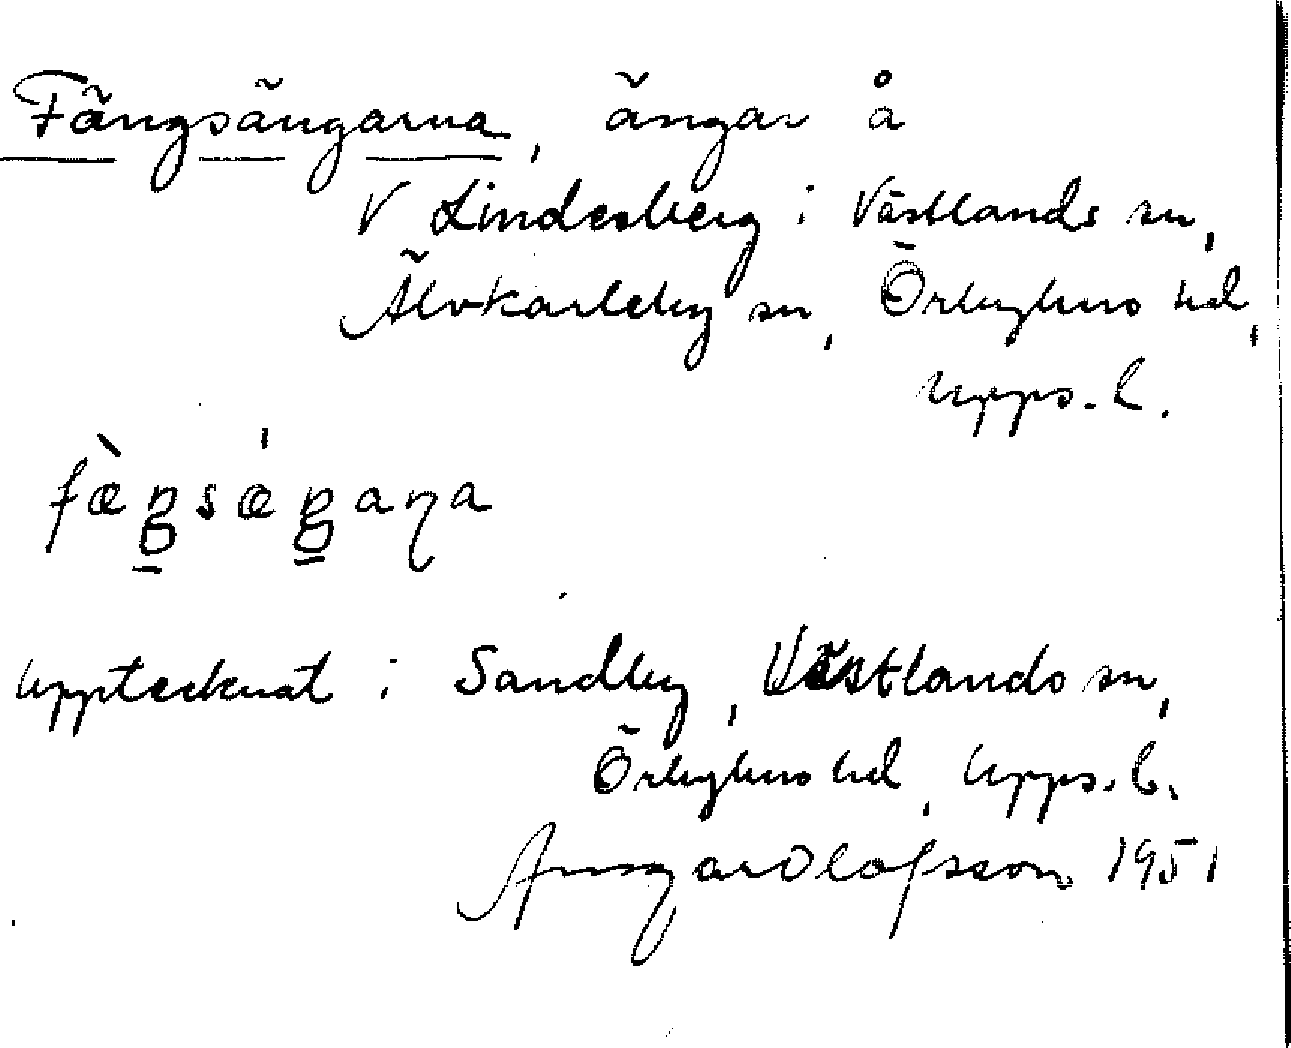 Fängsängarna, ängar å
V Lindesberg i Västlands sn,
Älvkarleby sn, Örbyhus hd,
Upps. l.
uppteckna​t i Sandby, Västlands sn,
Örbyhus hd, Upps. l.
Ansgar Olofsson 1951